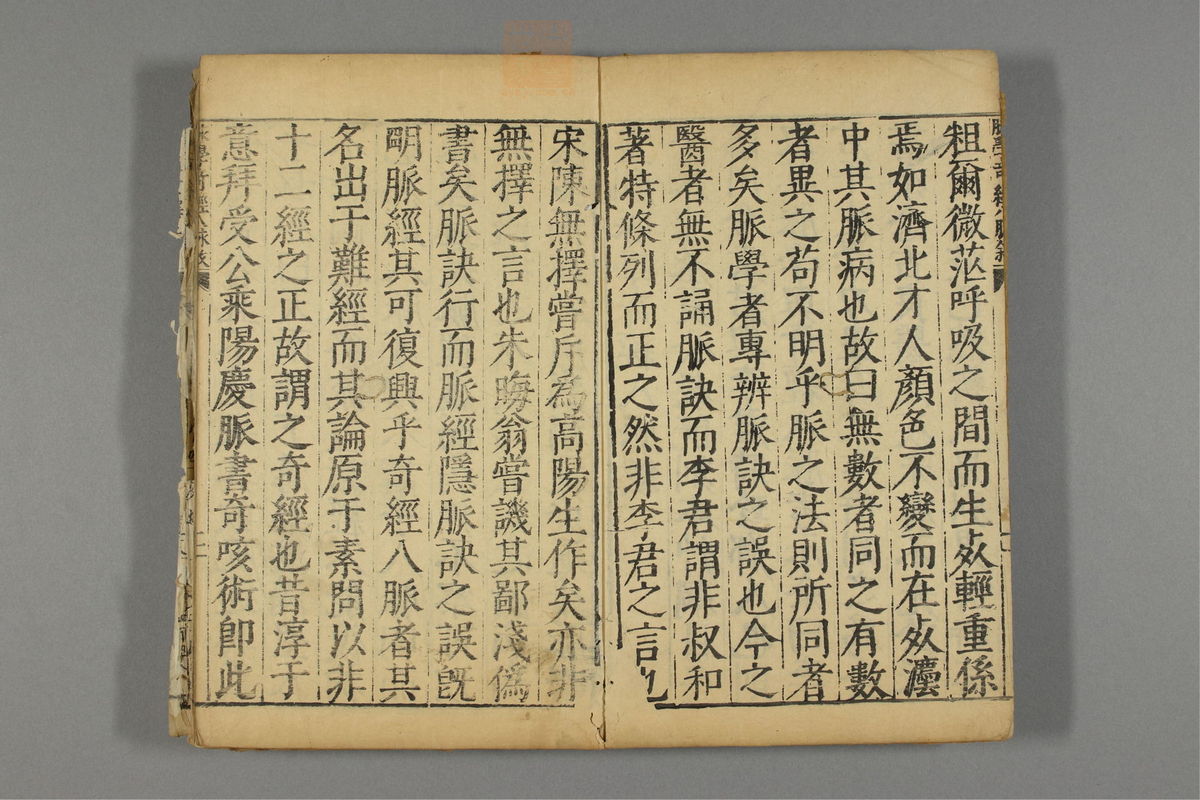 粗爾微茫呼吸之間而生死輕重係
焉如濟北才人顏色不變而在死瀍
中其脈病也故曰無數者同之有數
者異之茍不明乎脈之法則所同者
多矣脈學者專辨脈訣之誤也今之
醫者無不誦脈訣而李君謂非叔和
著特條列而正之然非李君之言也
宋陳無擇嘗斥為高陽生作矣亦非
無擇之言也朱晦翁嘗譏其鄙淺偽
書矣脈訣行而脈經隱脈訣之誤旣
明脈經其可復興乎奇經八脈者其
名出于難經而其論原于素問以非
十二經之正故謂之奇經也昔淳于
意拜受公乘陽慶脈書奇咳術卽此